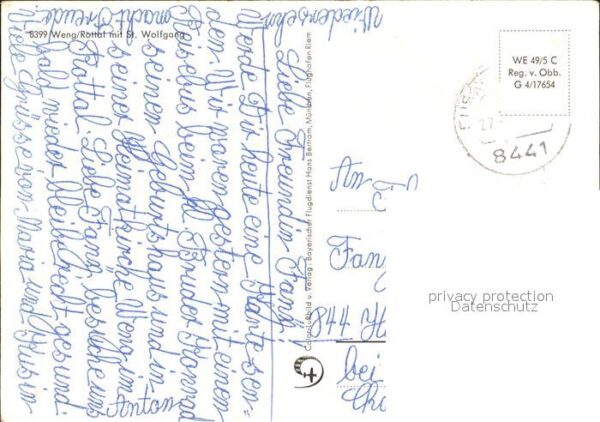 8399 Weng/Rottal mit St. Wolfgang
Liebe Freundin Fanny!
Werde Dir heute eine Karte sen=
den. Wir waren gestern mit einen
Reisebus beim hl. Bruder Konrad
seinen Geburtshaus und in
seiner Heimatkirche Weng im
Rottal. Liebe Fanny besuche uns
bald wieder. Bleib recht gesund.
Viele Grüsse von Maria und
Anton
Wiedersehn
macht Freude
Colorbild u. Verlag: Bayerischer Flugdienst Hans Bertram, München, Flughafen Riem
WE 49/5 C
Reg. v. Obb.
G 4/17654
27.
8441
An
Fan
844
bei
privacy protection
Datenschutz